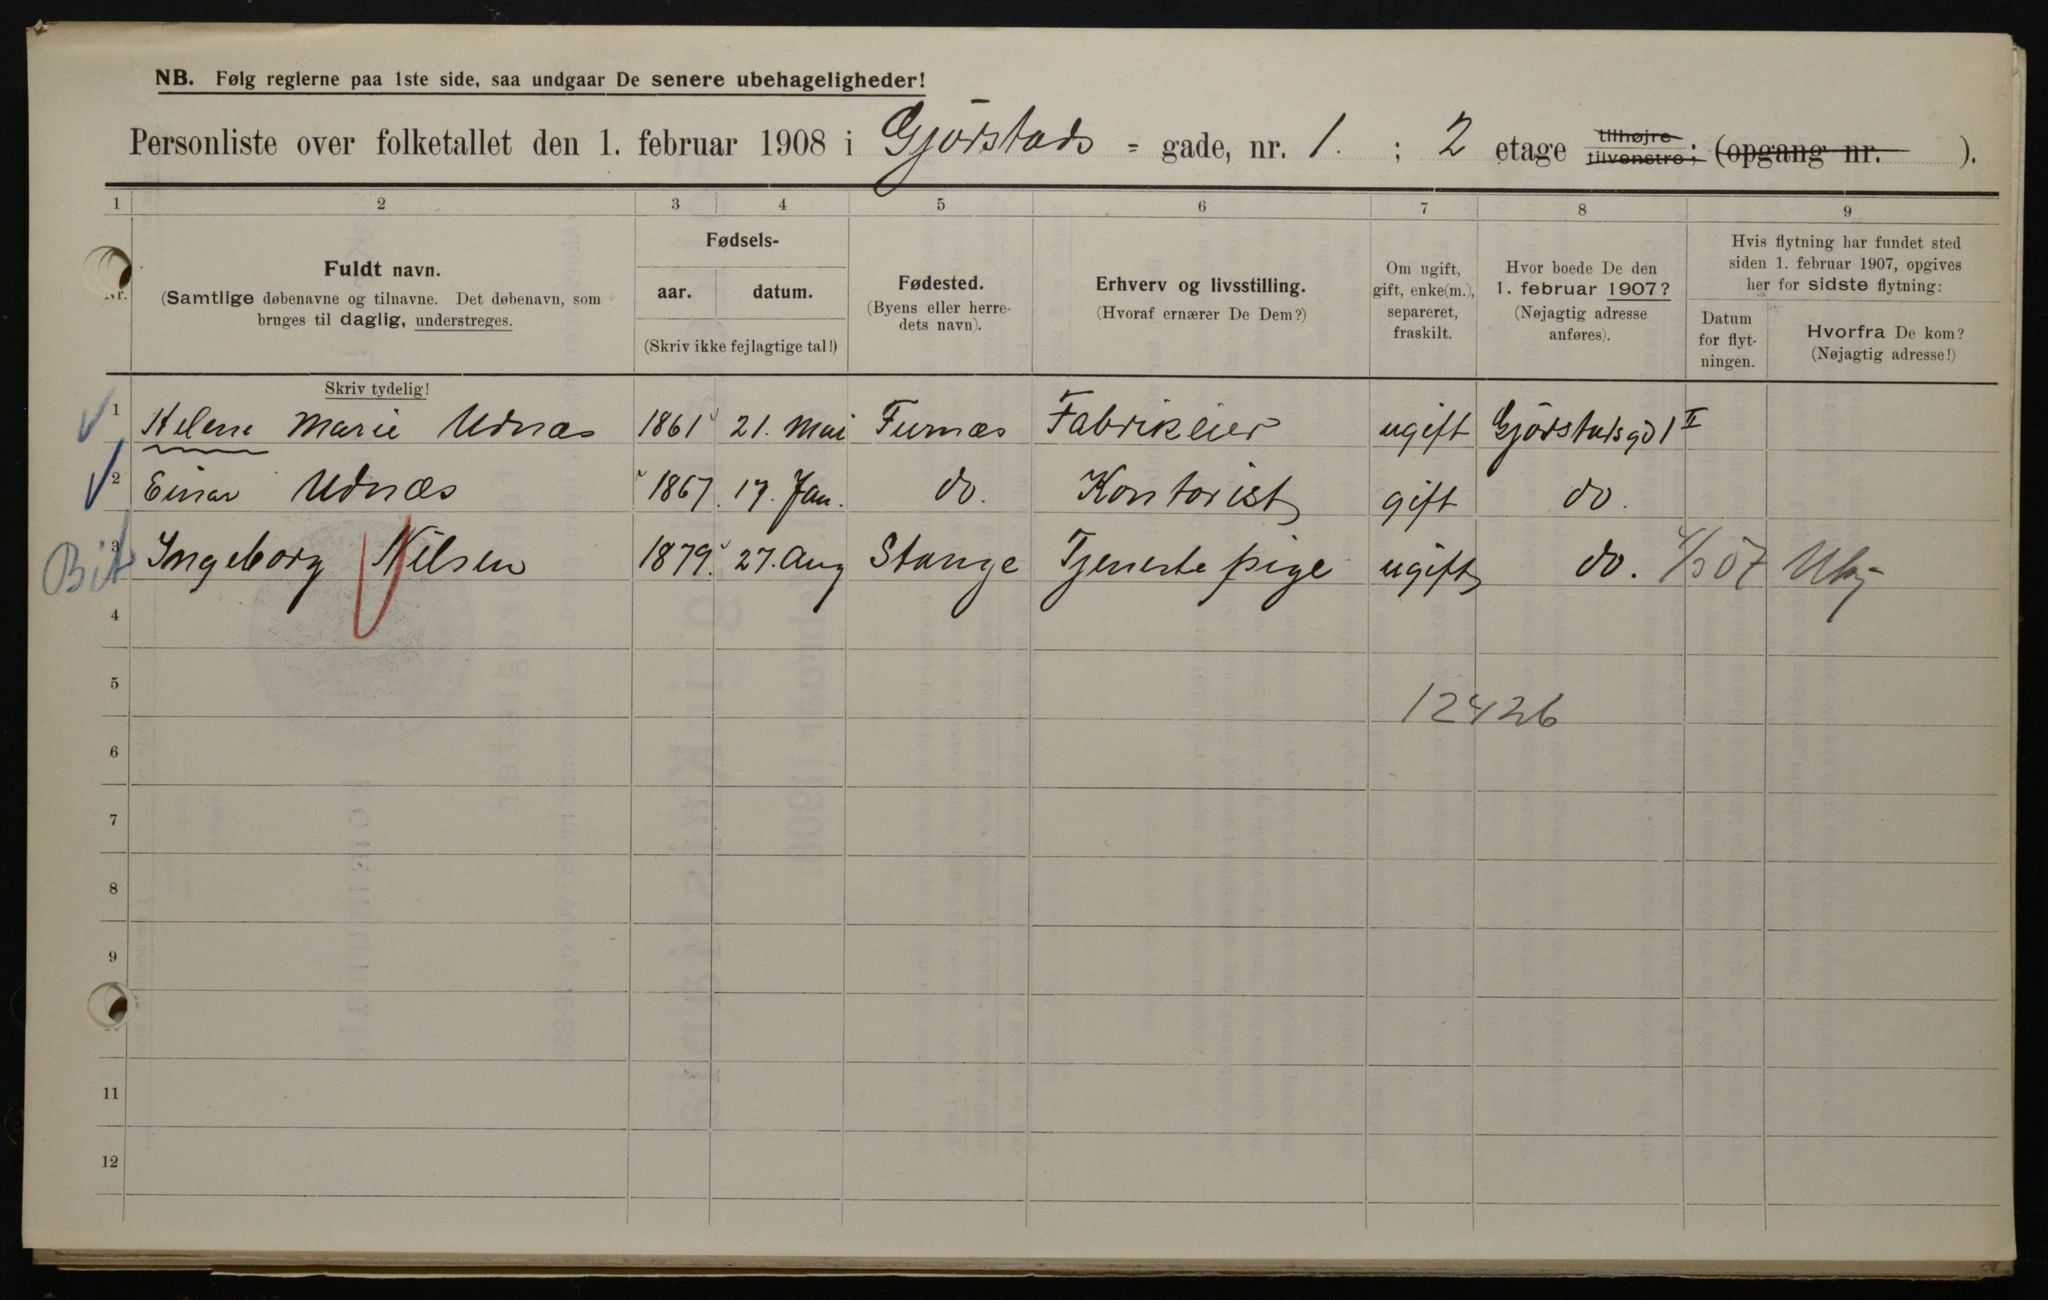 NB. Følg reglerne paa 1ste side, saa undgaar De senere ubehageligheder!
Personliste over folketallet den 1. februar 1908 i Gjörstads - gade, nr. 1. ; 2 etage tilhøjre tilvenstre; (opgang nr. ).
1 2 3 4 5 6 7 8 9
Nr.
Fuldt navn.
(Samtlige døbenavne og tilnavne. Det døbenavn, som
bruges til daglig, understreges.
Fødsels-
aar. datum.
(Skriv ikke fejlagtige tal!)
Fødested.
(Byens eller herre-
dets navn).
Erhverv og livsstilling.
(Hvoraf ernærer De Dem?)
Om ugift,
gift, enke(m.),
separeret,
fraskilt.
Hvor boede De den
1. februar 1907?
(Nøjagtig adresse
anføres).
Hvis flytning har fundet sted
siden 1. februar 1907, opgives
her for sidste flytning:
Datum
for flyt-
ningen.
Hvorfra De kom?
(Nøjagtig adresse!)
Skriv tydelig!
1 Helene Marie Udnæs 1861 21. Mai Furnæs Fabrikeier ugift Gjörstadsgd 1 II
2 Einar Udnæs 1867. 17. Jan. do. Kontorist gift do.
3 Ingeborg Nilsen 1879. 27. Aug Stange Tjenestepige ugift do. 07
4
5
12426
6
7
8
9
11
12